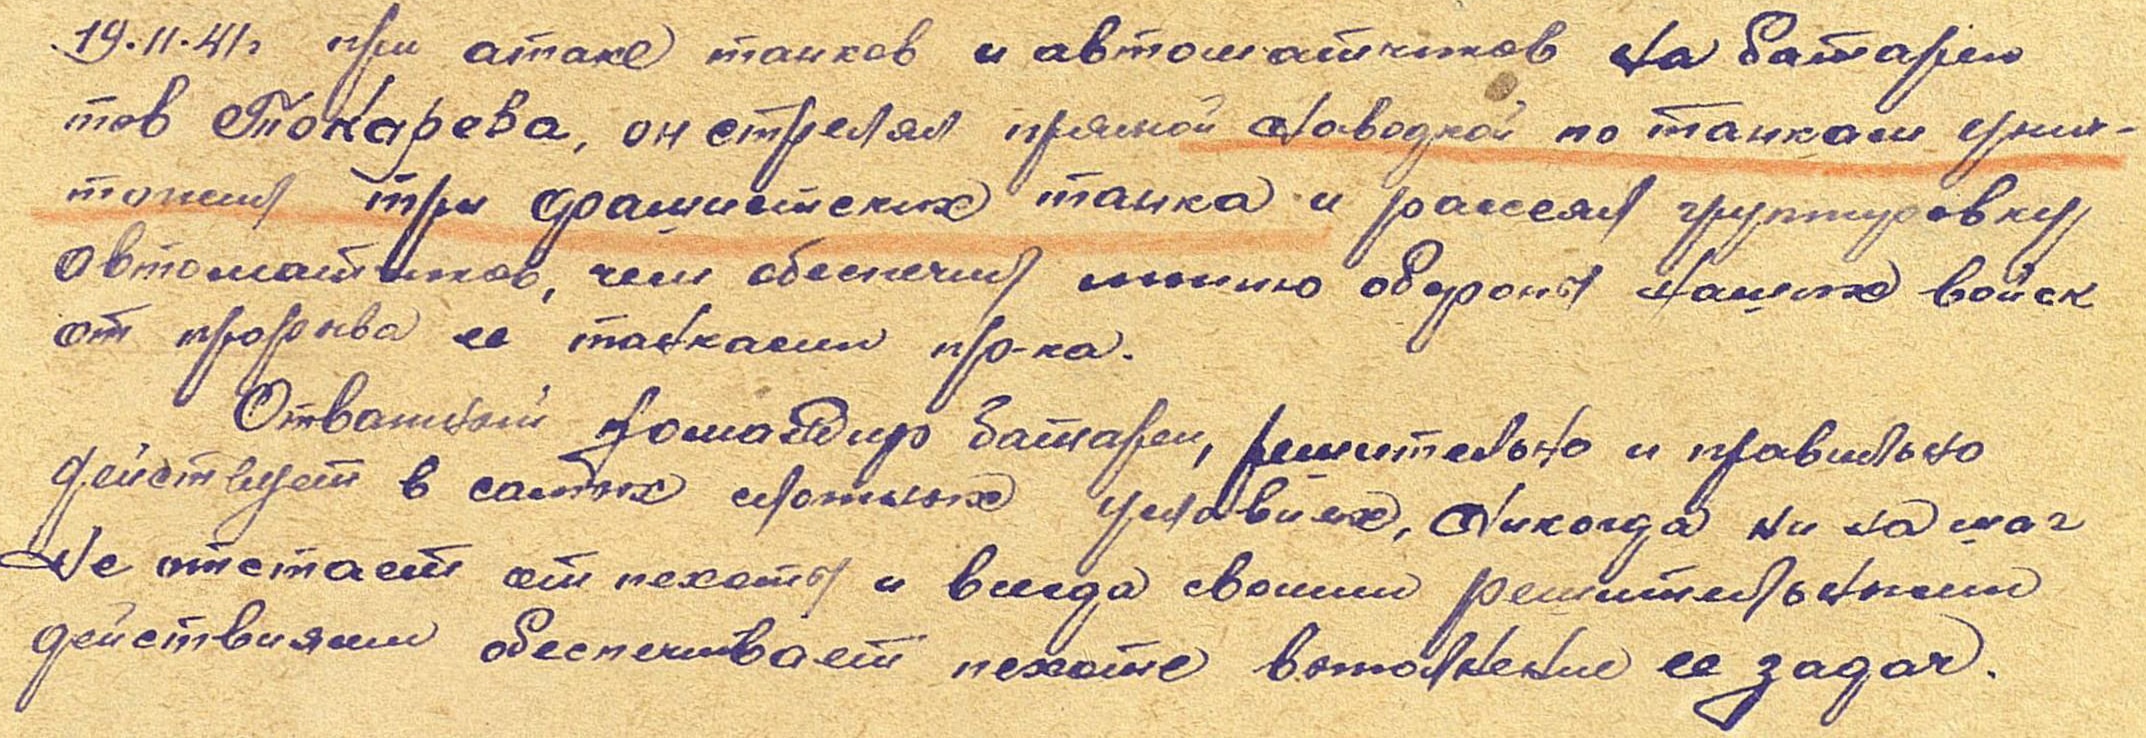 19.11.41г при атаке танков и автоматчиков на батарею
тов Токарева, он стрелял прямой наводкой по танкам унич-
тожил три фашистских танка и рассеял группировку
автоматчиков, чем обеспечил линию обороны наших войск
от прорыва ее танками пр-ка.
Отважный командир батареи, решительно и правильно
действует в самых сложных условиях, никогда ни на шаг
не отстает от пехоты и всегда своими решительными
действиями обеспечивает пехоте выполнение ее задач.